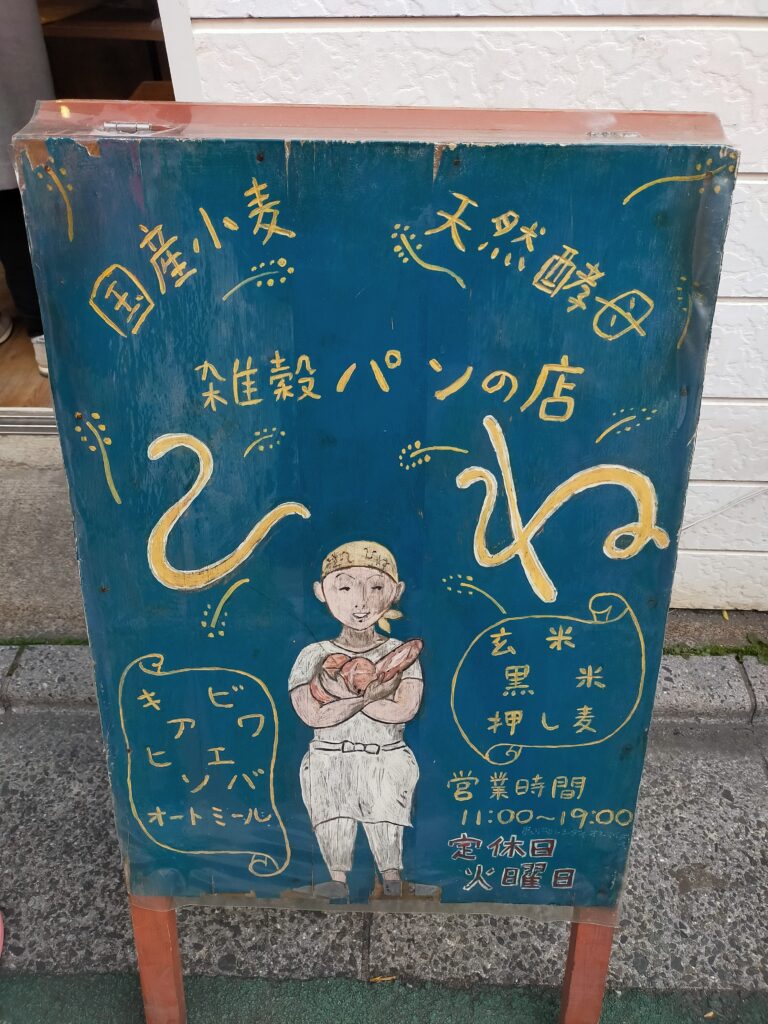 国産小麦
天然酵母
雑穀パンの店
ひね
キビ
アワ
ヒエ
ソバ
オートミール
玄米
黒米
押し麦
営業時間
11:00〜19:00
定休日
火曜日